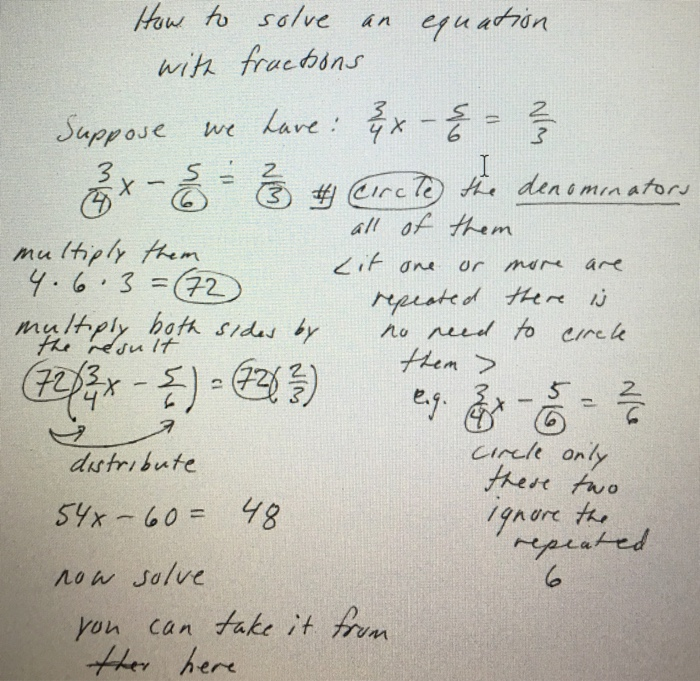 How to solve an equation
with fractions
Suppose we have: 3/4 x - 5/6 = 2/3
3/4 x - 5/6 = 2/3 #1 circle the denominators
all of them
multiply them
4 · 6 · 3 = 72
multiply both sides by
the result
72(3/4 x - 5/6) = 72(2/3)
distribute
54x - 60 = 48
now solve
you can take it from
here
<if one or more are
repeated there is
no need to circle
them >
e.g. 3/4 x - 5/6 = 2/6
circle only
these two
ignore the
repeated
6